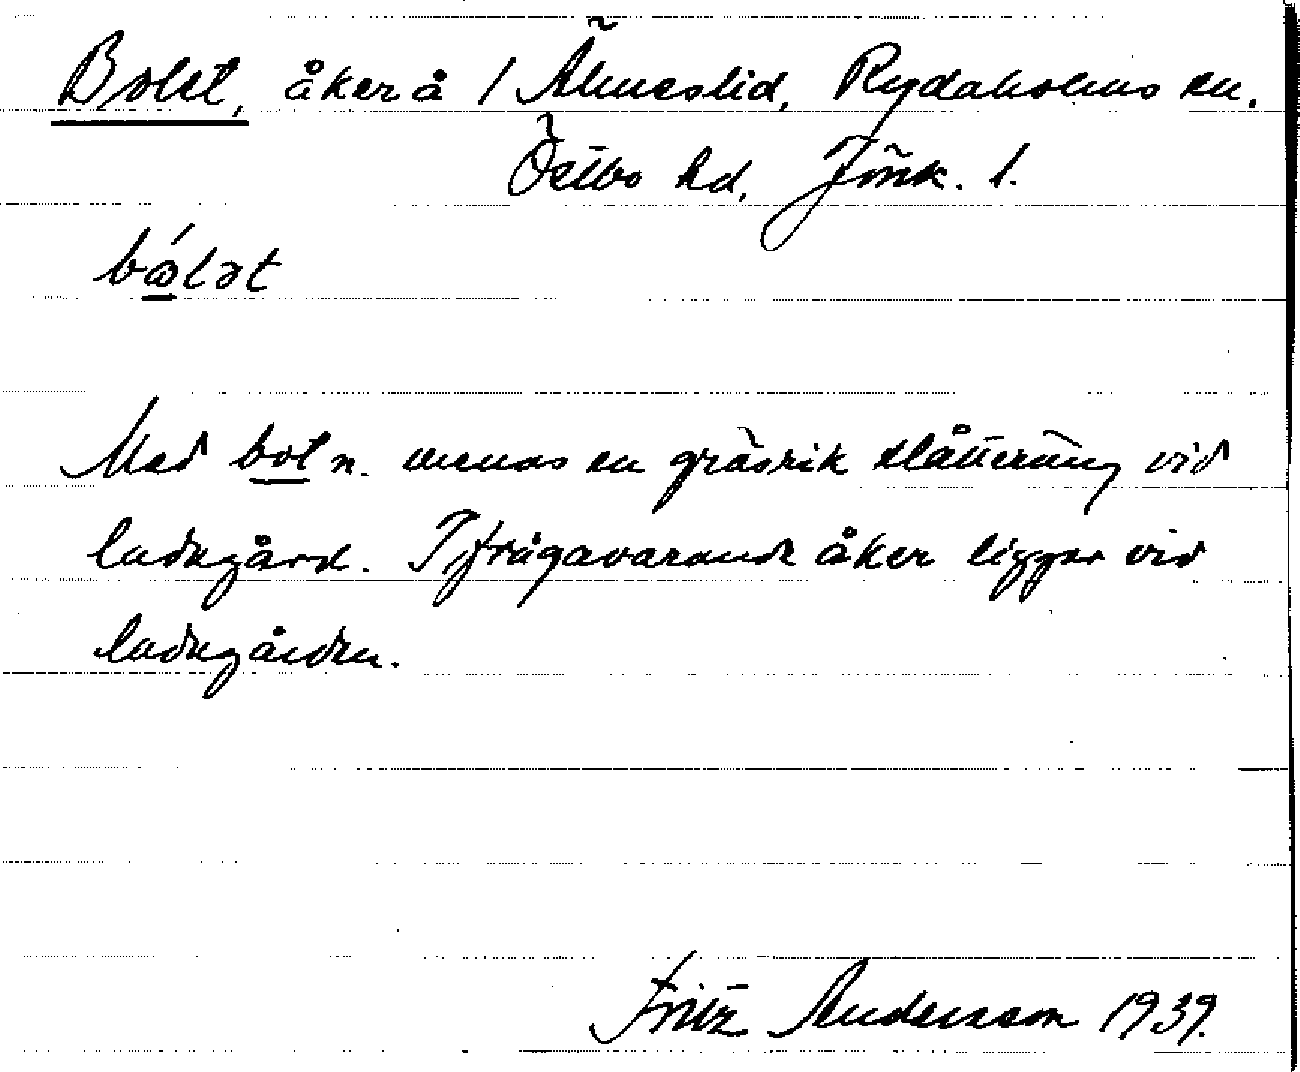 Bolet, åker å / Älmeslid, Rydaholms sn.
Östbo hd, Jönk. l.
bólət
Med bol n. menas en gräsrik slåtteräng vid
ladugård. Ifrågavarande åker ligger vid
ladugården.
Fritz Andersson 1939.